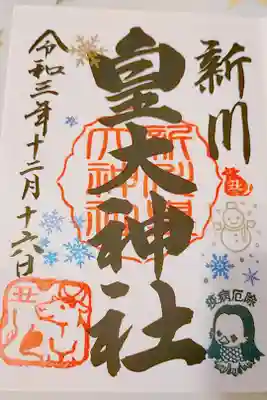 新川
皇大神社
令和三年十二月十六日
新川皇大神社
丑
丑
疫病厄除